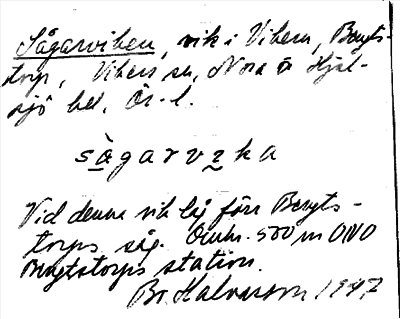 Sågarviken, vik i Vikern, Bengts-
torp, Vikers sn, Nora o Hjul-
sjö hd, Ör. l.
sågarvika
Vid denna vik låg förr Bengts-
torps såg. Omkr. 500 m ONO
Bengtstorps station.
Br. Halvarson 1947